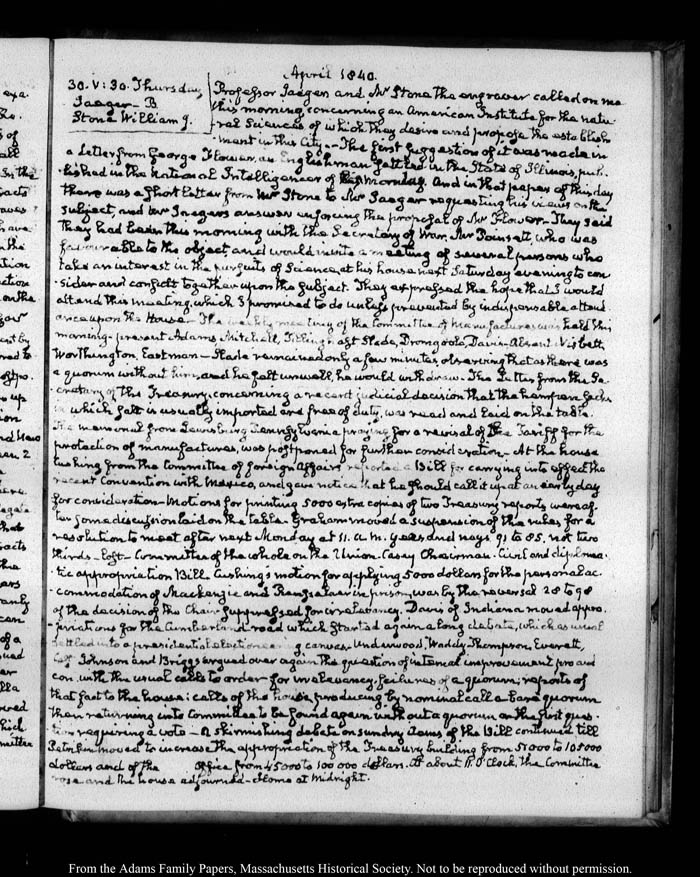 April 1840.
30. V: 30. Thursday
Jaeger - B.
Stone William J.
Professor Jaeger and Mr Stone the engraver called on me
this morning concerning an American Institute for the natu-
ral Sciences of which they desire and propose the establish-
ment in this City - The first suggestion of it was made in
a Letter from George Flower, an Englishman settled in the State of Illinois, pub-
lished in the National Intelligencer of Monday. And in that paper of this day
there was a short letter from Mr Stone to Mr Jaeger requesting his views on the
subject, and Mr Jaegers answer enforcing the proposal of Mr Flower. They said
they had been this morning with the Secretary of War, Mr Poinsett, who was
favourable to the object, and would invite a meeting of several persons who
take an interest in the pursuits of Science, at his house next Saturday evening to con-
sider and consult together upon the subject. They expressed the hope that I would
attend this meeting, which I promised to do unless prevented by indispensable attend-
ance upon the House. The weekly meeting of the Committee of Manufactures was held this
morning - present Adams, Mitchell, Tillinghast Slade, Dromgoole, Davis - Absent Nisbet
Worthington, Eastman - Slade remained only a few minutes, observing that as there was
a quorum without him, and he felt unwell, he would withdraw. The Letter from the Se-
cretary of the Treasury, concerning a recent judicial decision that the hempen sacks
in which salt is usually imported are free of duty, was read and laid on the table.
The memorial from Lewisburg Pennsylvania praying for a revisal of the Tariff for the
protection of manufactures, was postponed for further consideration - At the house
Cushing from the Committee of foreign Affairs reported a Bill for carrying into effect the
recent Convention with Mexico, and gave notice that he should call it up at an early day
for consideration - Motions for printing 5000 extra copies of two Treasury reports were af-
ter some discussion laid on the table. Graham moved a suspension of the rules for a
resolution to meet after next Monday at 11. a.m. yeas and nays 91 to 85. not two
thirds - lost - Committee of the whole on the Union. Casey Chairman. Civil and diploma-
tic appropriation Bill. Cushing's motion for applying 5000 dollars for the personal ac-
commodation of Mackenzie and Van Rensselaer in prison, was by the reversal 28 to 98
of the decision of the Chair suppressed for irrelevancy. Davis of Indiana moved appro-
priations for the Cumberland road which started again a long debate, which as usual
settled into a presidential electioneering canvass. Underwood, Waddy Thompson, Everett,
Johnson and Briggs argued over again the question of internal improvement pro and
con. with the usual calls to order for irrelevancy, failures of a quorum; reports of
that fact to the house: calls of the house, producing by nominal call a bare quorum
then returning into Committee to be found again without a quorum on the first ques-
tion requiring a vote - A skirmishing debate on sundry items of the Bill continued till
Petrikin moved to increase the appropriation of the Treasury building from 51000 to 105000
dollars and of the Office from 45000 to 100 000 dollars. At about 11. O'Clock, the Committee
rose and the house adjourned - Home at Midnight.
From the Adams Family Papers, Massachusetts Historical Society. Not to be reproduced without permission.